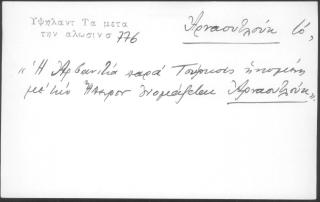 Υψηλαντ Τα μετα
την αλωσιν σ 776
Ἀρναουτλούκ τό,
"Ἡ Ἀρβανιτία παρά Τούρκοις ἡνωμένη
μέ τήν Ἤπειρον ὀνομάζεται Ἀρναουτλούκ".